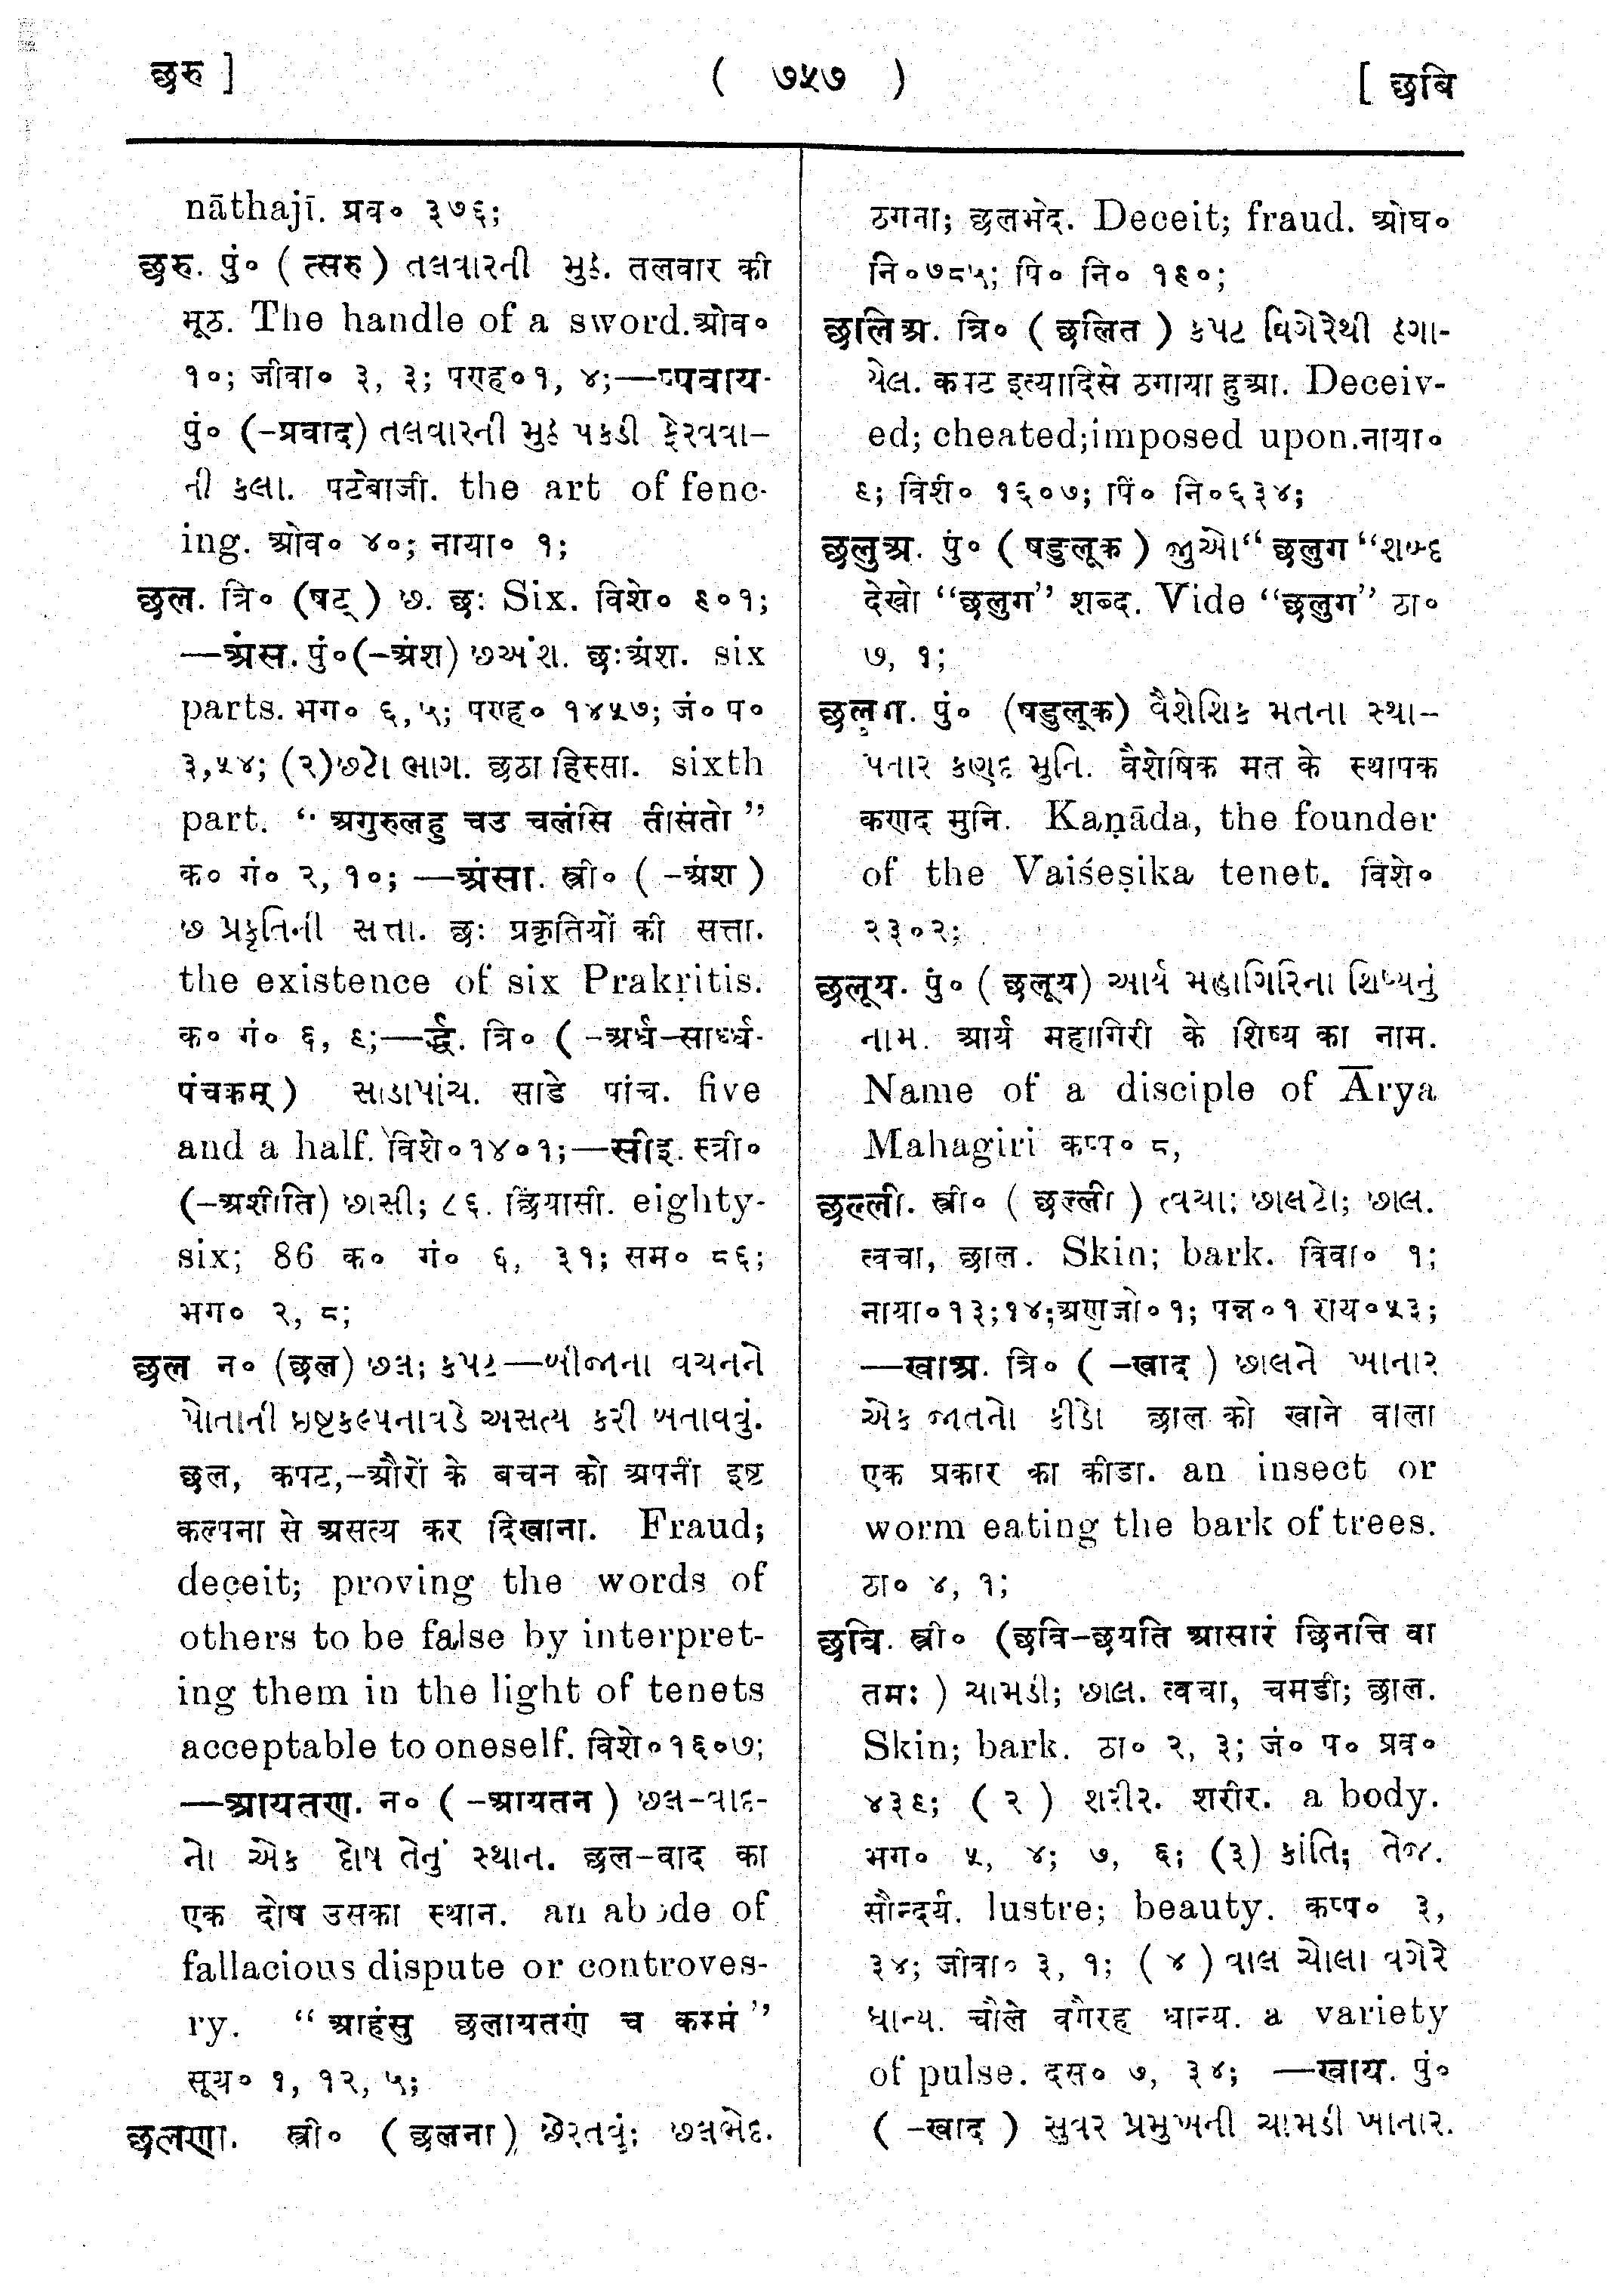 छरु ]
( ७५७ )
[ छबि
nāthajī. प्रव० ३७६;
छरु. पुं० ( त्सरु ) તલવારની મુઠ. तलवार की
मूठ. The handle of a sword.ओव०
१०; जीवा० ३, ३; पण्ह०१, ४;—प्पवाय-
पुं० (-प्रवाद) તલવારની મુઠ પકડી ફેરવવા-
ની કલા. पटेबाजी. the art of fenc-
ing. ओव० ४०; नाया० १;
छल. त्रि० (षट् ) ૭. छः Six. विशे० ६०१;
—अंस. पुं०(-अंश) છઅંશ. छःअंश. six
parts. भग० ६,५; पण्ह० १४५७; जं० प०
३,५४; (२)છટો ભાગ. छठा हिस्सा. sixth
part. “ अगुरुलहु चउ चलंसि तीसंतो ”
क० गं० २, १०; —अंसा. स्त्री० ( -अंश )
છ પ્રકૃતિની સત્તા. छः प्रकृतियों की सत्ता.
the existence of six Prakṛitis.
क० गं० ६, ९;—र्द्ध. त्रि० ( -अर्ध-सार्ध्ध-
पंचकम् ) સાડાપાંચ. साडे पांच. five
and a half. विशे०१४०१;—सीइ. स्त्री०
(-अशीति) છાસી; ૮૬. छियासी. eighty-
six; 86 क० गं० ६, ३१; सम० ८६;
भग० २, ८;
छल न० (छल) છળ; કપટ—બીજાના વચનને
પોતાની ઇષ્ટકલ્પનાવડે અસત્ય કરી બતાવવું.
छल, कपट,-औरों के बचन को अपनीं इष्ट
कल्पना से असत्य कर दिखाना. Fraud;
deceit; proving the words of
others to be false by interpret-
ing them in the light of tenets
acceptable to oneself. विशे०१६०७;
—आयतण. न० ( -आयतन ) છળ-વાદ-
નો એક દોષ તેનું સ્થાન. छल-वाद का
एक दोष उसका स्थान. an abode of
fallacious dispute or controves-
ry. “ आहंसु छलायतणं च कम्मं ”
सूय० १, १२, ५;
छलणा. स्त्री० ( छलना ) છેરતવું; છળભેદ.
ठगना; छलभेद. Deceit; fraud. ओघ०
नि०७८५; पि० नि० १६०;
छलिअ. त्रि० ( छलित ) કપટ વિગેરેથી ઠગા-
યેલ. कपट इत्यादिसे ठगाया हुआ. Deceiv-
ed; cheated;imposed upon.नाया०
९; विशे० १६०७; पिं० नि०६३४;
छलुअ. पुं० ( षडुलूक ) જુઓ“ छलुग “શબ્દ
देखो “छलुग” शब्द. Vide “छलुग” ठा०
७, १;
छलुग. पुं० (षडुलूक) વૈશેશિક મતના સ્થા-
પનાર કણદ મુનિ. वैशेषिक मत के स्थापक
कणद मुनि. Kaṇāda, the founder
of the Vaiśeṣika tenet. विशे०
२३०२;
छलूय. पुं० ( छलूय) આર્ય મહાગિરિના શિષ્યનું
નામ. आर्य महागिरी के शिष्य का नाम.
Name of a disciple of Ārya
Mahagiri कप्प० ८,
छल्ली. स्त्री० ( छल्ली ) ત્વચા; છાલટો; છાલ.
त्वचा, छाल. Skin; bark. विवा० १;
नाया०१३;१४;अणुजो०१; पन्न०१ राय०५३;
—खाअ. त्रि० ( -खाद ) છાલને ખાનાર
એક જાતનો કીડો छाल को खाने वाला
एक प्रकार का कीडा. an insect or
worm eating the bark of trees.
ठा० ४, १;
छवि. स्त्री० (छवि-छयति आसारं छिनत्ति वा
तमः ) ચામડી; છાલ. त्वचा, चमडी; छाल.
Skin; bark. ठा० २, ३; जं० प० प्रव०
४३९; ( २ ) શરીર. शरीर. a body.
भग० ५, ४; ७, ६; (३) કાંતિ; તેજ.
सौन्दर्य. lustre; beauty. कप्प० ३,
३४; जीवा० ३, १; ( ४ ) વાલ ચોલા વગેરે
ધાન્ય. चौले वगैरह धान्य. a variety
of pulse. दस० ७, ३४; —खाय. पुं०
( -खाद ) સુવર પ્રમુખની ચામડી ખાનાર.